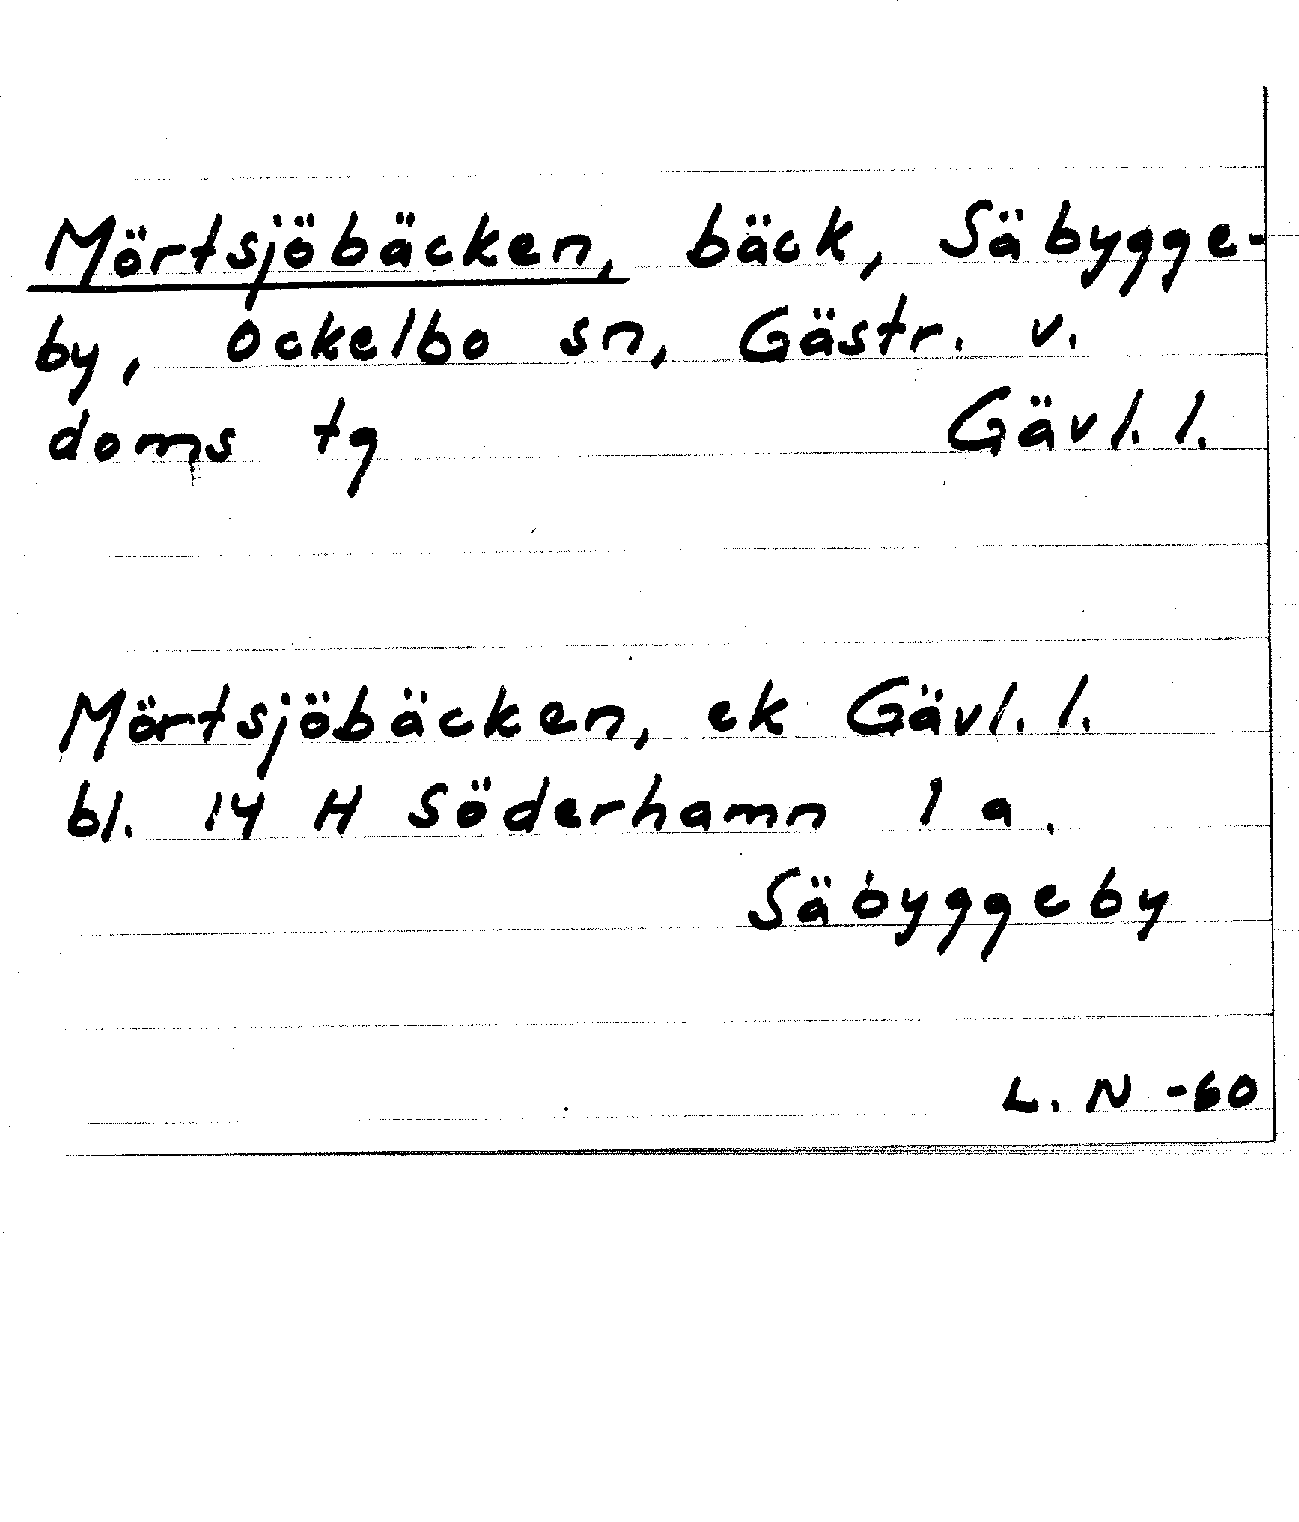 Mörtsjöbäcken, bäck, Säbygge-
by, Ockelbo sn, Gästr. v.
doms tg Gävl. l.
Mörtsjöbäcken, ek Gävl. l.
bl. 14 H Söderhamn 1 a.
Säbyggeby
L. N -60